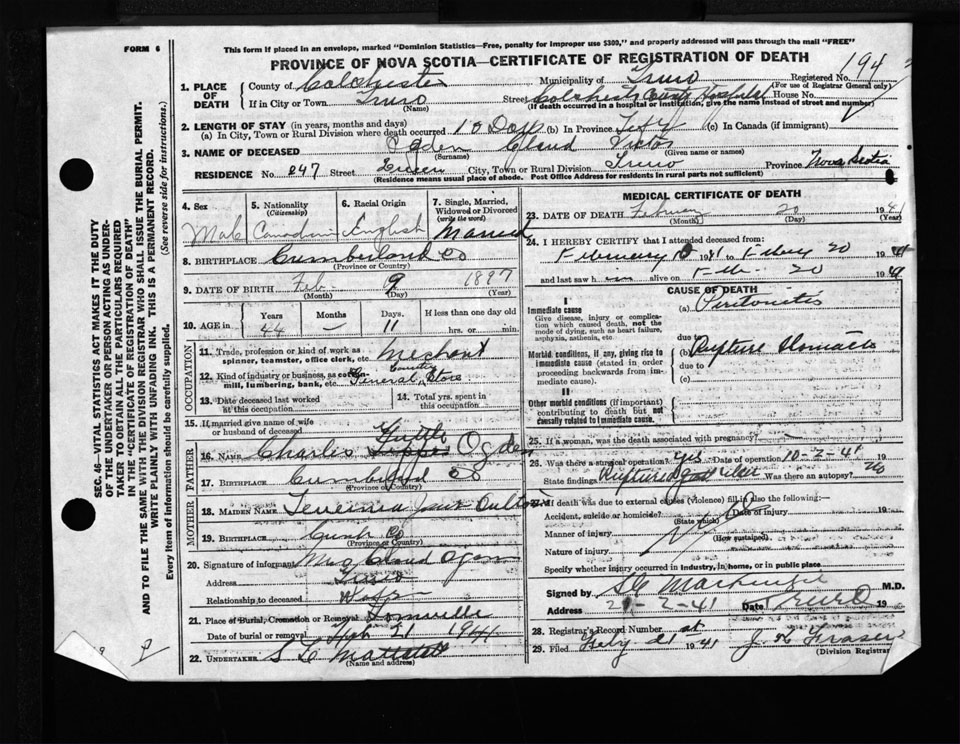 FORM 6
This form if placed in an envelope, marked "Dominion Statistics—Free, penalty for improper use $300," and properly addressed will pass through the mail "FREE"
PROVINCE OF NOVA SCOTIA—CERTIFICATE OF REGISTRATION OF DEATH
Registered No. 194
(For use of Registrar General only)
1. PLACE OF DEATH
County of Colchester Municipality of Truro
If in City or Town Truro Street Colchester County Hospital House No.
(Name) (If death occurred in a hospital or institution, give the name instead of street and number)
2. LENGTH OF STAY (in years, months and days)
(a) In City, Town or Rural Division where death occurred 10 Days (b) In Province Life (c) In Canada (if immigrant)
3. NAME OF DECEASED Ogden Claud Victor
(Surname) (Given name or names)
RESIDENCE No. 247 Street City, Town or Rural Division Truro Province Nova Scotia
(Residence means usual place of abode. Post Office Address for residents in rural parts not sufficient)
4. Sex Male
5. Nationality (Citizenship) Canadian
6. Racial Origin English
7. Single, Married, Widowed or Divorced (write the word) Married
8. BIRTHPLACE Cumberland Co
(Province or Country)
9. DATE OF BIRTH Feb 9 1897
(Month) (Day) (Year)
10. AGE in Years Months Days. If less than one day old
44 — 11 hrs. or min.
OCCUPATION
11. Trade, profession or kind of work as spinner, teamster, office clerk, etc. Mechant
12. Kind of industry or business, as cotton-mill, lumbering, bank, etc. Country General Store
13. Date deceased last worked at this occupation
14. Total yrs. spent in this occupation
15. If married give name of wife or husband of deceased
FATHER
16. NAME Charles Tuttle Ogden
17. BIRTHPLACE Cumberland Co
(Province or Country)
MOTHER
18. MAIDEN NAME Jane Oulton
19. BIRTHPLACE Cumb Co
(Province or Country)
20. Signature of informant Mrs Claud Ogden
Address Truro
Relationship to deceased
21. Place of Burial, Cremation or Removal Linnville
Date of burial or removal Feb 21 1941
22. UNDERTAKER
(Name and address)
MEDICAL CERTIFICATE OF DEATH
23. DATE OF DEATH February 20 1941
(Month) (Day) (Year)
24. I HEREBY CERTIFY that I attended deceased from:
February 10 1941 to Febry 20 1941
and last saw him alive on Feb. 20 1941
CAUSE OF DEATH
I
Immediate cause
Give disease, injury or complication which caused death, not the mode of dying, such as heart failure, asphyxia, asthenia, etc.
(a) Peritonitis
due to
Morbid conditions, if any, giving rise to immediate cause (stated in order proceeding backwards from immediate cause).
(b) Rupture Stomach
due to
(c)
II
Other morbid conditions (if important) contributing to death but not causally related to immediate cause.
25. If a woman, was the death associated with pregnancy?
26. Was there a surgical operation? yes Date of operation 10-2-41
State findings Ruptured Was there an autopsy? no
27. If death was due to external causes (violence) fill in also the following:—
Accident, suicide or homicide? Date of injury
(State which)
Manner of injury
(How sustained)
Nature of injury
Specify whether injury occurred in industry, in home, or in public place
Signed by MacKenzie M.D.
Address 21-2-41 Date Truro 19
28. Registrar's Record Number
29. Filed Feby 21st 1941 Fraser
(Division Registrar)
SEC. 46—VITAL STATISTICS ACT MAKES IT THE DUTY
OF THE UNDERTAKER OR PERSON ACTING AS UNDER-
TAKER TO OBTAIN ALL THE PARTICULARS REQUIRED
IN THE "CERTIFICATE OF REGISTRATION OF DEATH"
AND TO FILE THE SAME WITH THE DIVISION REGISTRAR WHO SHALL ISSUE THE BURIAL PERMIT.
WRITE PLAINLY WITH UNFADING INK. THIS IS A PERMANENT RECORD.
Every item of information should be carefully supplied. (See reverse side for instructions.)